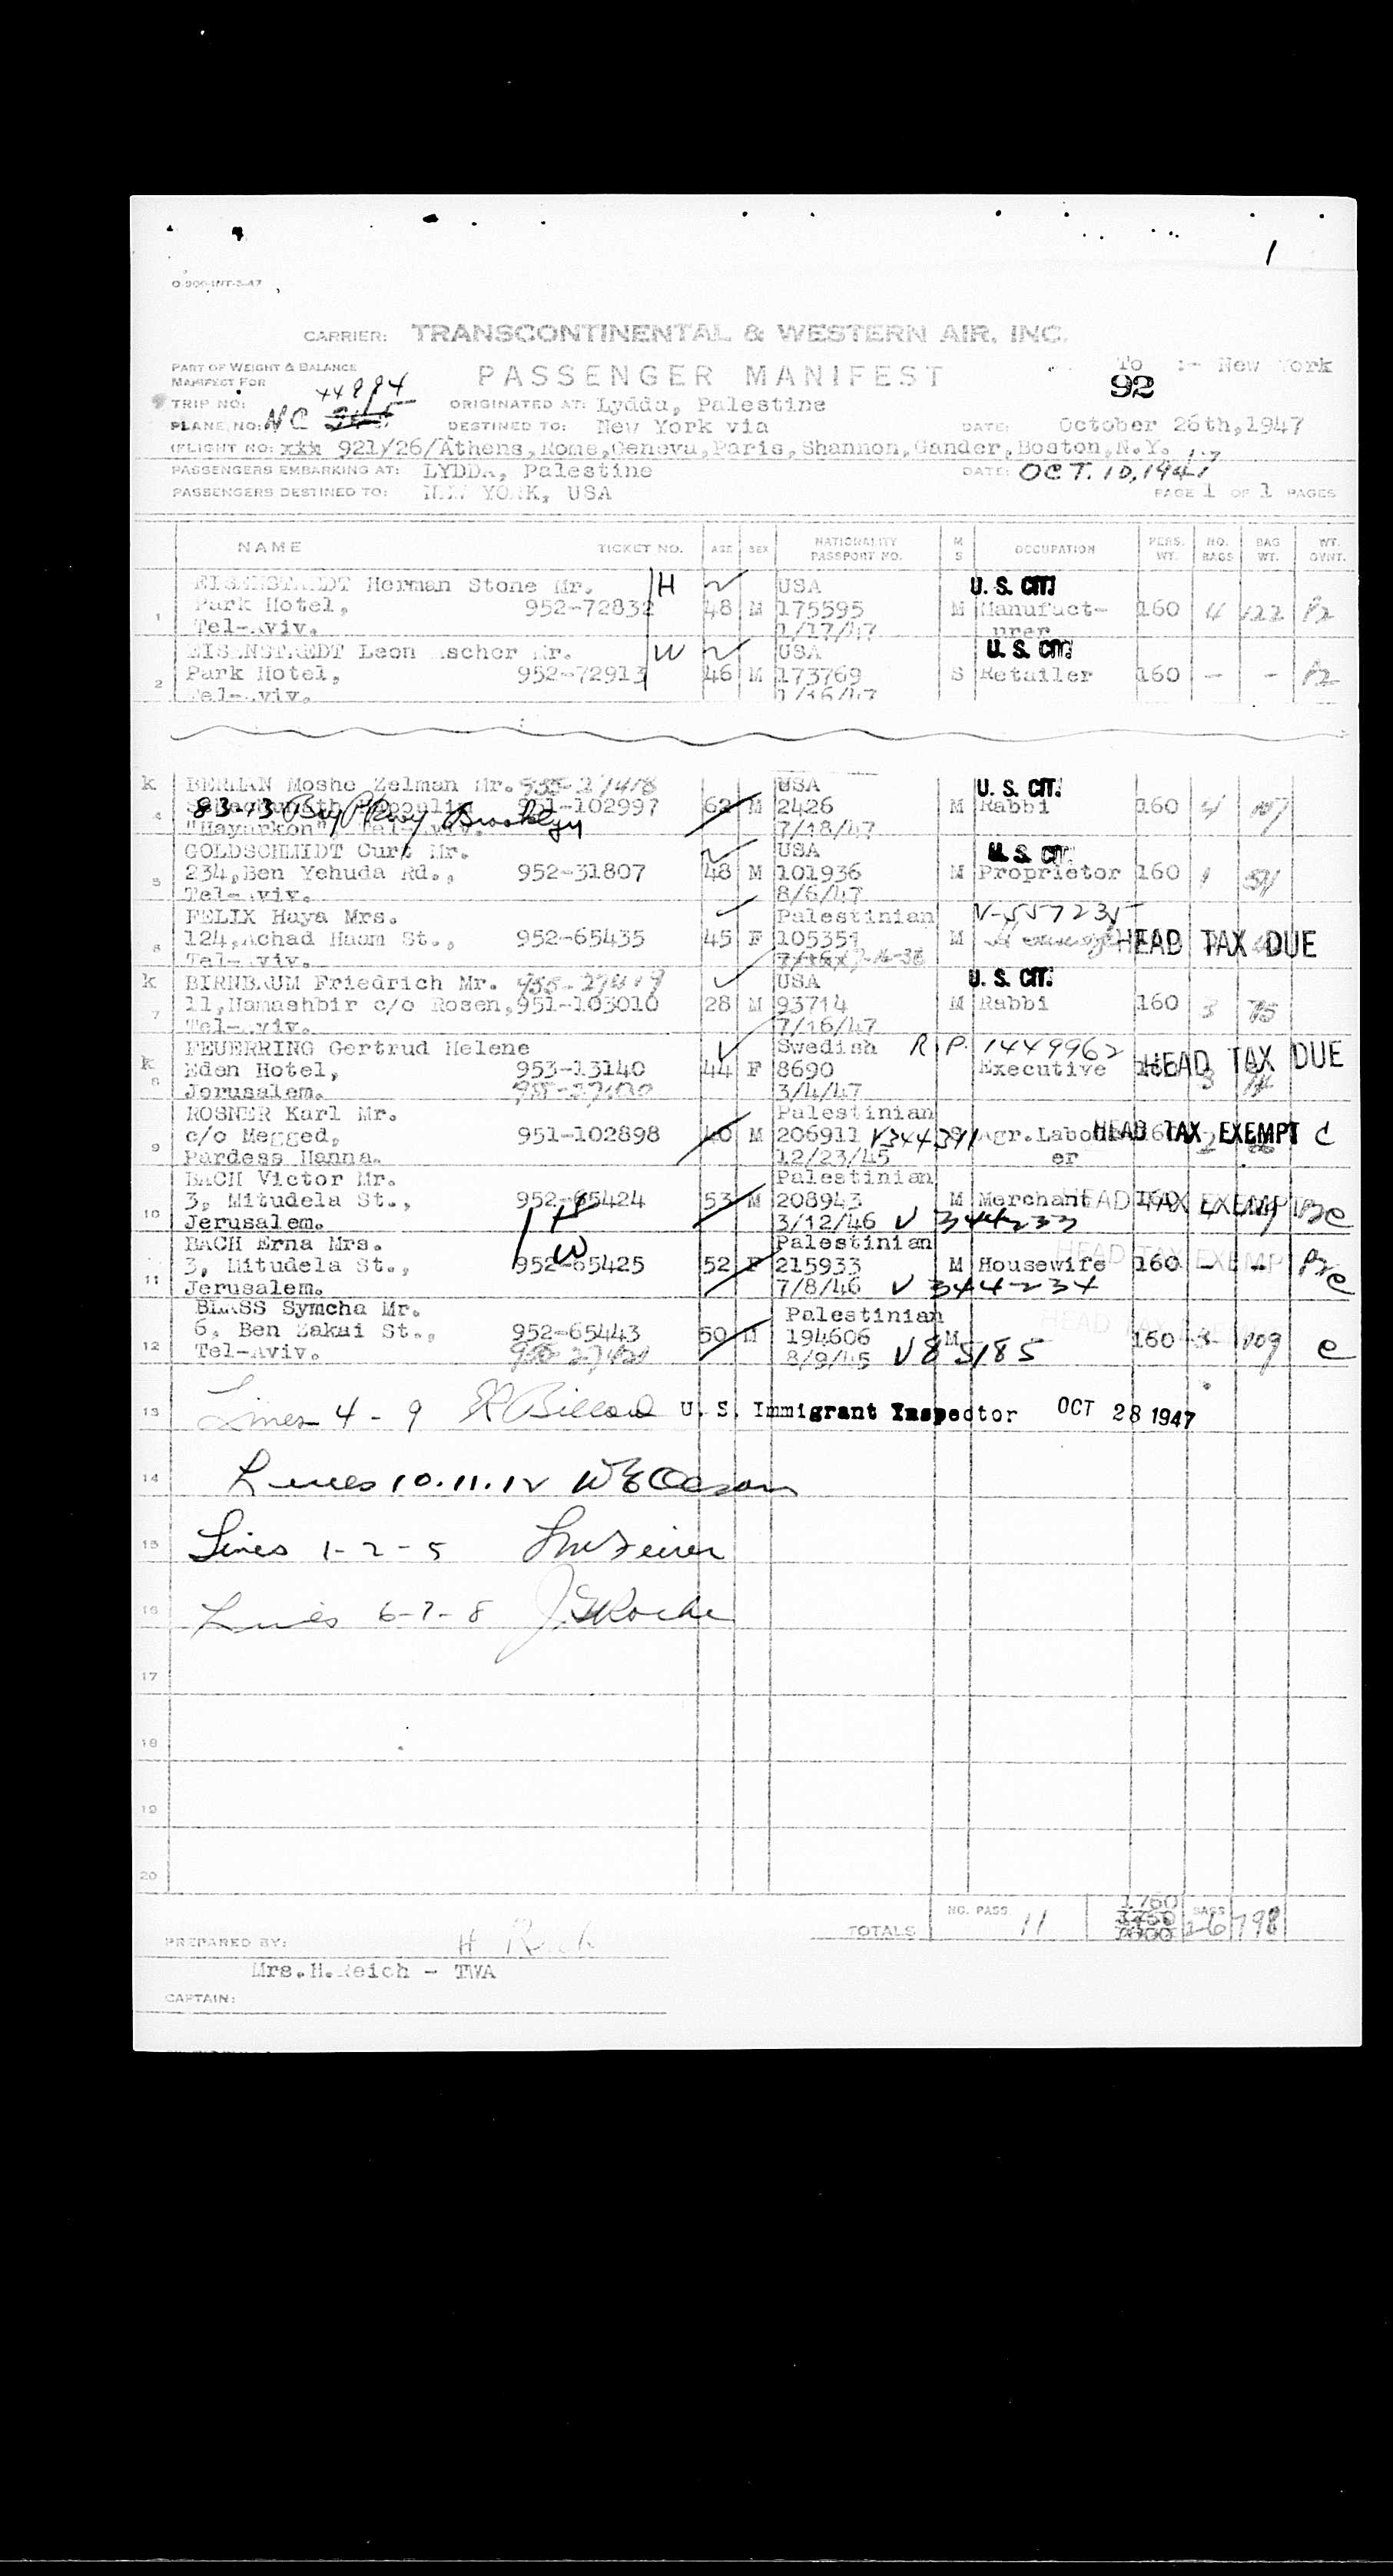 1
O-900-INT-3-47
CARRIER: TRANSCONTINENTAL & WESTERN AIR, INC.
PART OF WEIGHT & BALANCE
MANIFEST FOR
PASSENGER MANIFEST
To :- New York
92
TRIP NO:
ORIGINATED AT: Lydda, Palestine
PLANE NO: NC
DESTINED TO: New York via
DATE: October 26th, 1947
FLIGHT NO: xxx 921/26/Athens, Rome, Geneva, Paris, Shannon, Gander, Boston, N.Y.
PASSENGERS EMBARKING AT: LYDDA, Palestine
DATE: OCT. 10, 1947
PASSENGERS DESTINED TO: NEW YORK, USA
PAGE 1 OF 1 PAGES
NAME TICKET NO. AGE SEX NATIONALITY PASSPORT NO. M S OCCUPATION PERS. WT. NO. BAGS BAG WT. WT. GVNT.
EISENSTAEDT Herman Stone Mr. H USA U. S. CIT.
1 Park Hotel, 952-72832 48 M 175595 M Manufact- 160 4 122
Tel-Aviv. 1/17/47 urer
EISENSTAEDT Leon Ascher Mr. W USA U. S. CIT.
2 Park Hotel, 952-72913 46 M 173769 S Retailer 160 - -
Tel-Aviv. 1/16/47
k BERMAN Moshe Zelman Mr. 955-27418 USA U. S. CIT.
4 951-102997 62 M 2426 M Rabbi 160 4 107
83-13 Bay Pkwy Brooklyn
"Hayarkon" Tel-Aviv. 7/18/47
GOLDSCHMIDT Curt Mr. USA U. S. CIT.
5 234, Ben Yehuda Rd., 952-31807 48 M 101936 M Proprietor 160 1 54
Tel-Aviv. 8/6/47
FELIX Haya Mrs. Palestinian V-557235
6 124, Achad Haam St., 952-65435 45 F 105351 M HEAD TAX DUE
Tel-Aviv.
k BIRNBAUM Friedrich Mr. 955-27419 USA U. S. CIT.
7 11, Hamashbir c/o Rosen, 951-103010 28 M 93714 M Rabbi 160 3 75
Tel-Aviv. 7/16/47
FEUERRING Gertrud Helene Swedish R.P. 1449962
k 8 Eden Hotel, 953-13140 44 F 8690 Executive HEAD TAX DUE
Jerusalem. 3/4/47
ROSNER Karl Mr. Palestinian
9 c/o Megged, 951-102898 40 M 206911 V344311 S Agr.Labour- 160 HEAD TAX EXEMPT C
Pardess Hanna. 12/23/45 er
BACH Victor Mr. Palestinian
10 3, Mitudela St., 952-65424 H 53 M 208943 M Merchant 160 HEAD TAX EXEMPT
Jerusalem. 3/12/46 V 344233
BACH Erna Mrs. W Palestinian
11 3, Mitudela St., 952-65425 52 F 215933 M Housewife 160 - - HEAD TAX EXEMPT
Jerusalem. 7/8/46 V 344234
BLASS Symcha Mr. Palestinian
12 6, Ben Zakai St., 952-65443 50 M 194606 M 160 3 109 HEAD TAX EXEMPT e
Tel-Aviv. 8/9/45 V 85185
13 Lines 4 - 9 U. S. Immigrant Inspector OCT 28 1947
14 Lines 10.11.12
15 Lines 1-2-5
16 Lines 6-7-8 J. Roche
17
18
19
20
TOTALS NO. PASS 11 1760 BAGS 26 798
PREPARED BY: H Reich
Mrs. H. Reich - TWA
CAPTAIN: